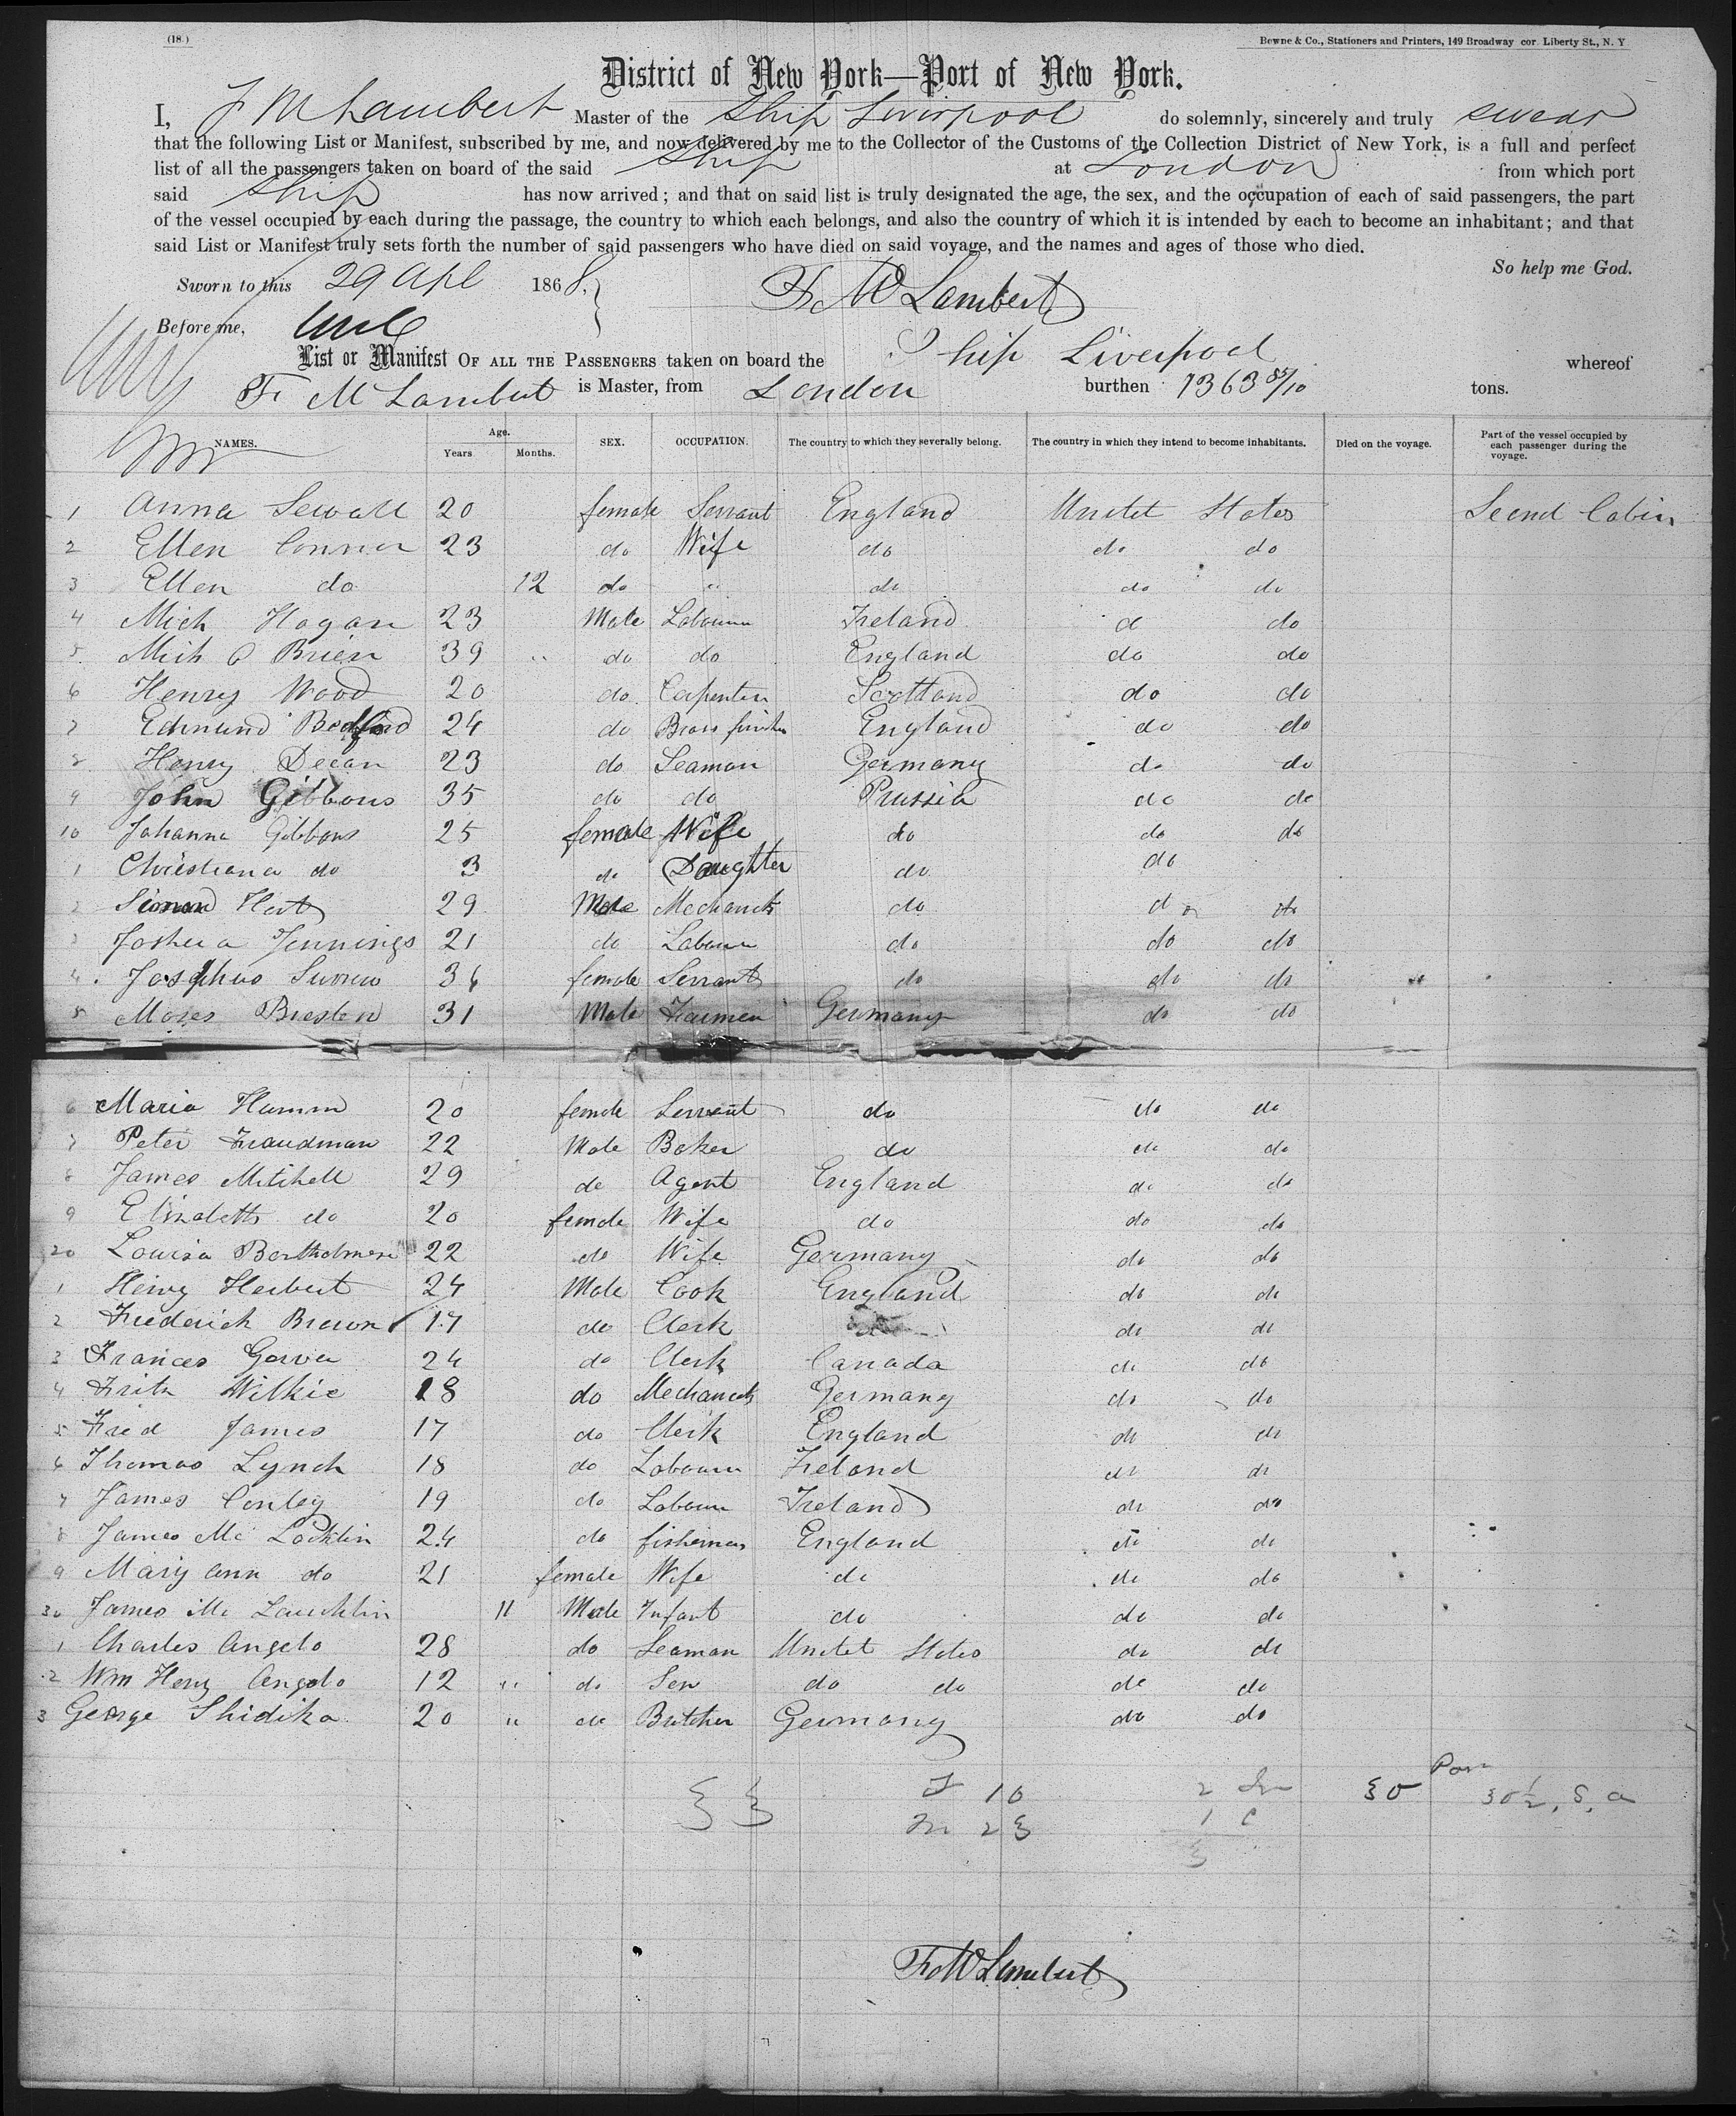 (18.)
Bowne & Co., Stationers and Printers, 149 Broadway cor. Liberty St., N. Y
District of New York—Port of New York.
I, F M Lambert Master of the Ship Liverpool do solemnly, sincerely and truly swear
that the following List or Manifest, subscribed by me, and now delivered by me to the Collector of the Customs of the Collection District of New York, is a full and perfect
list of all the passengers taken on board of the said Ship at London from which port
said Ship has now arrived; and that on said list is truly designated the age, the sex, and the occupation of each of said passengers, the part
of the vessel occupied by each during the passage, the country to which each belongs, and also the country of which it is intended by each to become an inhabitant; and that
said List or Manifest truly sets forth the number of said passengers who have died on said voyage, and the names and ages of those who died.
So help me God.
Sworn to this 29 Apl 1868.
Fr W Lambert
Before me,
List or Manifest OF ALL THE PASSENGERS taken on board the Ship Liverpool whereof
Fr M Lambert is Master, from London burthen 1363 85/10 tons.
NAMES. Age. Years Months. SEX. OCCUPATION. The country to which they severally belong. The country in which they intend to become inhabitants. Died on the voyage. Part of the vessel occupied by each passenger during the voyage.
1 Anna Sewall 20 female Servant England Unitet States Secnd Cabin
2 Ellen Connor 23 do Wife do do do
3 Ellen do 12 do " do do do
4 Mich Hogan 23 Male Labourer Ireland d do
5 Mich O Brien 39 " do do England do do
6 Henry Wood 20 do Carpenter Scottland do do
7 Edmund Bedford 24 do Brass finisher England do do
8 Henry Decan 23 do Seaman Germany do do
9 John Gibbons 35 do do Prussia do do
10 Johanna Gibbons 25 female Wife do do do
1 Christiana do 3 do Daughter do do
2 Simon 29 Male Mechanick do do do
3 Joshua Jennings 21 do Labourer do do do
4 Josephus 34 female Servant do do do
5 Moses 31 Male Farmer Germany do do
6 Maria Hamm 20 female Servant do do do
7 Peter Fraudman 22 Male Baker do do do
8 James Mitchell 29 do Agent England do do
9 Elizabeth do 20 female Wife do do do
20 Louisa 22 do Wife Germany do do
1 Henry Herbert 24 Male Cook England do do
2 Frederick Brown 17 do Clerk do do
3 Frances 24 do Clerk Canada do do
4 Fritz Wilkie 18 do Mechanick Germany do do
5 Fred James 17 do Clerk England do do
6 Thomas Lynch 18 do Labourer Ireland do do
7 James Conley 19 do Labourer Ireland do do
8 James Mc Locklin 24 do fisherman England do do
9 Mary Ann do 21 female Wife do do do
30 James Mc Laucklin 11 Male Infant do do do
1 Charles Angelo 28 do Seaman Unitet States do do
2 Wm Henry Angelo 12 " do Son do do do do
3 George Shidika 20 " do Butcher Germany do do
33 F 10 2 30 30½, S, a
m 23 1 c
3
Fr W Lambert